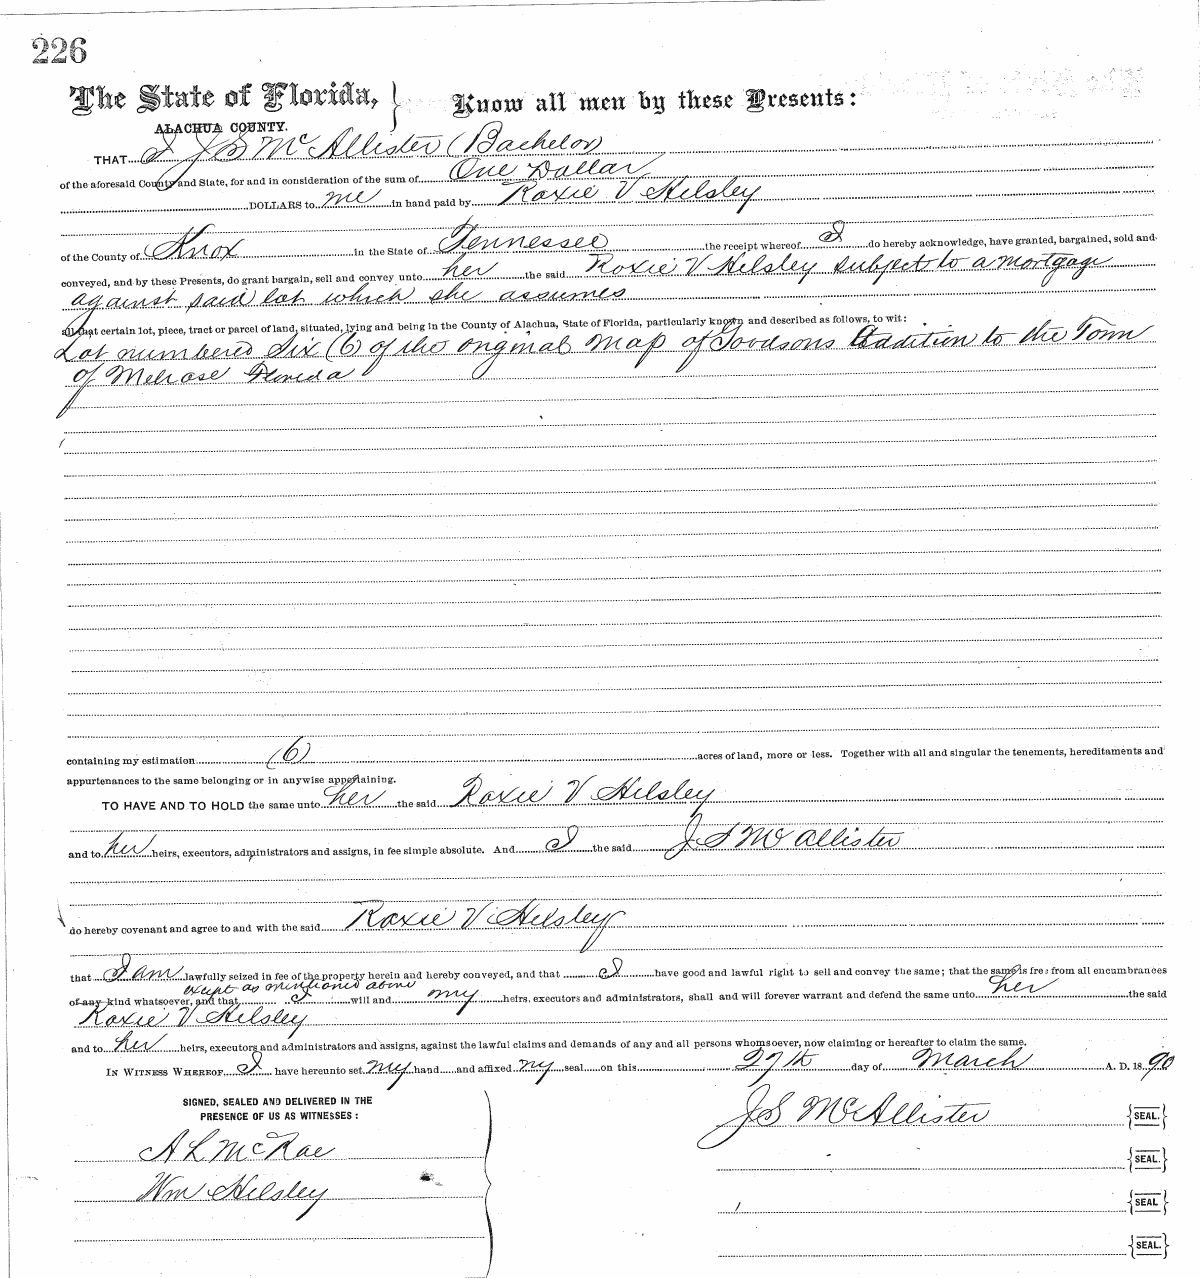 226
The State of Florida, } Know all men by these Presents:
ALACHUA COUNTY.
THAT I J S McAllister (Bachelor)
of the aforesaid County and State, for and in consideration of the sum of One Dollar
DOLLARS to me in hand paid by Roxie V Helsley
of the County of Knox in the State of Tennessee the receipt whereof I do hereby acknowledge, have granted, bargained, sold and
conveyed, and by these Presents, do grant bargain, sell and convey unto her the said Roxie V Helsley subject to a mortgage
against said lot which she assumes
all that certain lot, piece, tract or parcel of land, situated, lying and being in the County of Alachua, State of Florida, particularly known and described as follows, to wit:
Lot numbered Six (6 of the original Map of Goodsons Addition to the Town
of Melrose Florida
containing my estimation (6) acres of land, more or less. Together with all and singular the tenements, hereditaments and
appurtenances to the same belonging or in anywise appertaining.
TO HAVE AND TO HOLD the same unto her the said Roxie V Helsley
and to her heirs, executors, administrators and assigns, in fee simple absolute. And I the said J S McAllister
do hereby covenant and agree to and with the said Roxie V Helsley
that I am lawfully seized in fee of the property herein and hereby conveyed, and that I have good and lawful right to sell and convey the same; that the same is free from all encumbrances
except as mentioned above
of any kind whatsoever, and that I will and my heirs, executors and administrators, shall and will forever warrant and defend the same unto her the said
Roxie V Helsley
and to her heirs, executors and administrators and assigns, against the lawful claims and demands of any and all persons whomsoever, now claiming or hereafter to claim the same.
IN WITNESS WHEREOF I have hereunto set my hand and affixed my seal on this 27th day of March A. D. 1890
SIGNED, SEALED AND DELIVERED IN THE
PRESENCE OF US AS WITNESSES:
J S McAllister {SEAL.}
A L McRae
{SEAL.}
Wm Helsley
{SEAL}
{SEAL.}